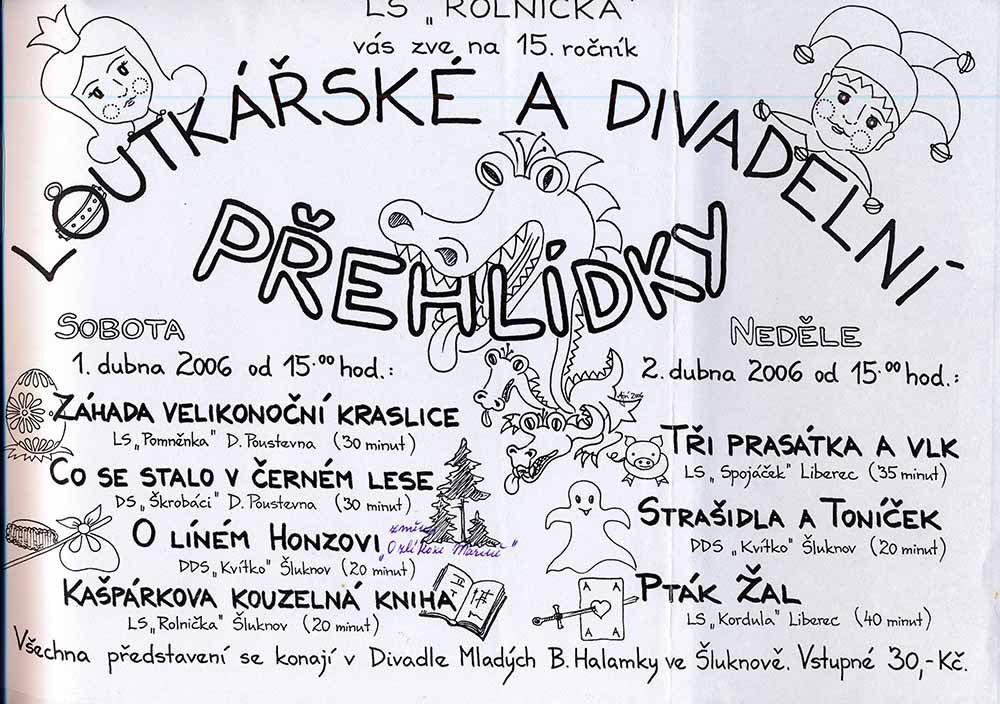 LS „ROLNIČKA"
vás zve na 15. ročník
LOUTKÁŘSKÉ A DIVADELNÍ
PŘEHLÍDKY
SOBOTA
1. dubna 2006 od 15.00 hod.:
ZÁHADA VELIKONOČNÍ KRASLICE
LS „Pomněnka" D. Poustevna (30 minut)
CO SE STALO V ČERNÉM LESE
DS „Škrobáci" D. Poustevna (30 minut)
O LÍNÉM HONZOVI
změna
DDS „Kvítko" Šluknov (20 minut)
KAŠPÁRKOVA KOUZELNÁ KNIHA
LS „Rolnička" Šluknov (20 minut)
NEDĚLE
2. dubna 2006 od 15.00 hod.:
TŘI PRASÁTKA A VLK
LS „Spojáček" Liberec (35 minut)
STRAŠIDLA A TONÍČEK
DDS „Kvítko" Šluknov (20 minut)
PTÁK ŽAL
A A
A A
LS „Kordula" Liberec (40 minut)
Všechna představení se konají v Divadle Mladých B. Halamky ve Šluknově. Vstupné 30,- Kč.